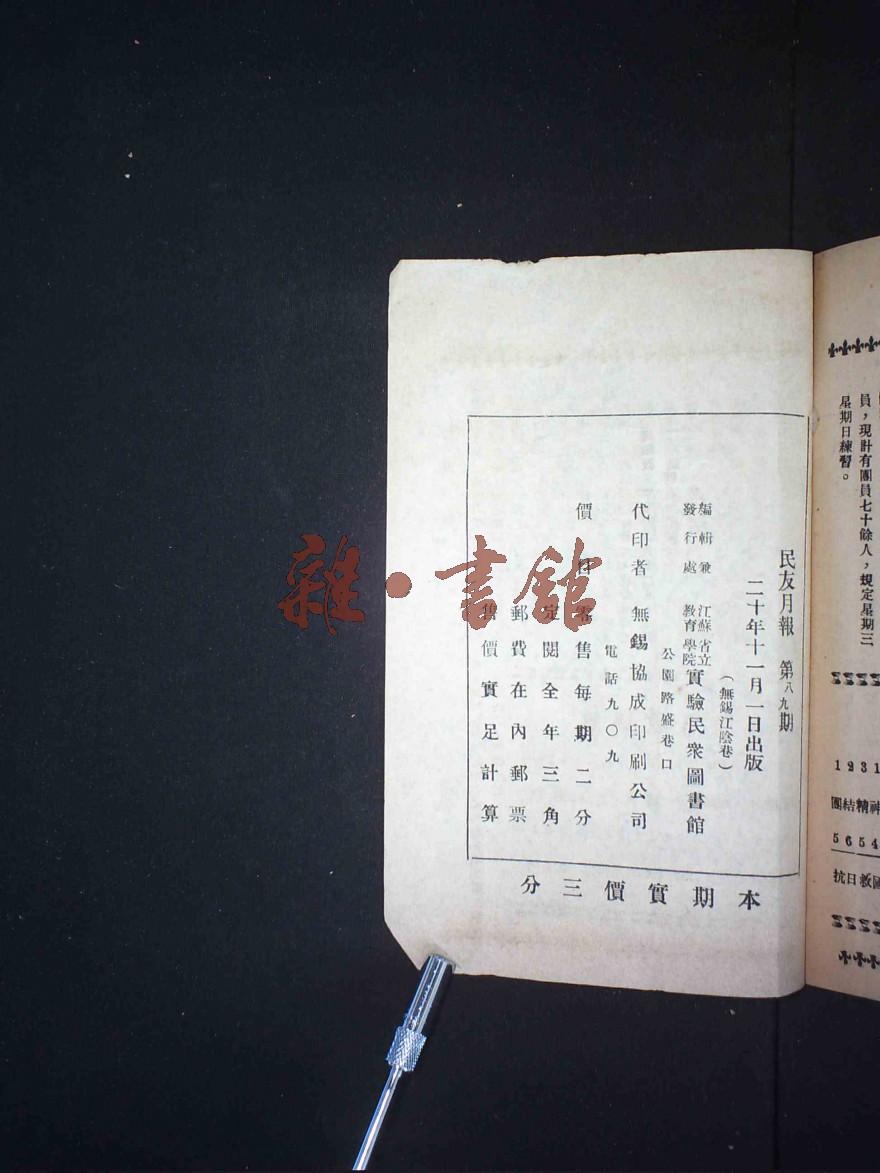 員，現計有團員七十餘人，規定星期三
星期日練習。
1 2 3 1
團結精神
5 6 5 4
抗日救國
民友月報 第八九期
二十年十一月一日出版
（無錫江陰巷）
編輯兼發行處 江蘇省立教育學院實驗民衆圖書館
公園路盛巷口
代印者 無錫協成印刷公司
電話九〇九
價目零售每期二分
定閱全年三角
郵費在內郵票
售價實足計算
本期實價三分
雜·書館